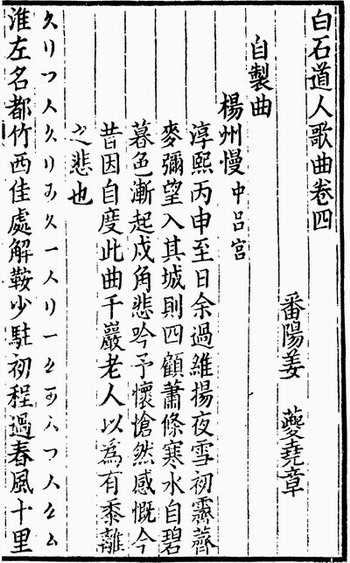 白石道人歌曲卷四
番陽姜 夔堯章
自製曲
楊州慢 中呂宮
淳熙丙申至日余過維揚夜雪初霽薺
麥彌望入其城則四顧蕭條寒水自碧
暮色漸起戍角悲吟予懷愴然感慨今
昔因自度此曲千巖老人以為有黍離
之悲也
淮左名都竹西佳處解鞍少駐初程過春風十里